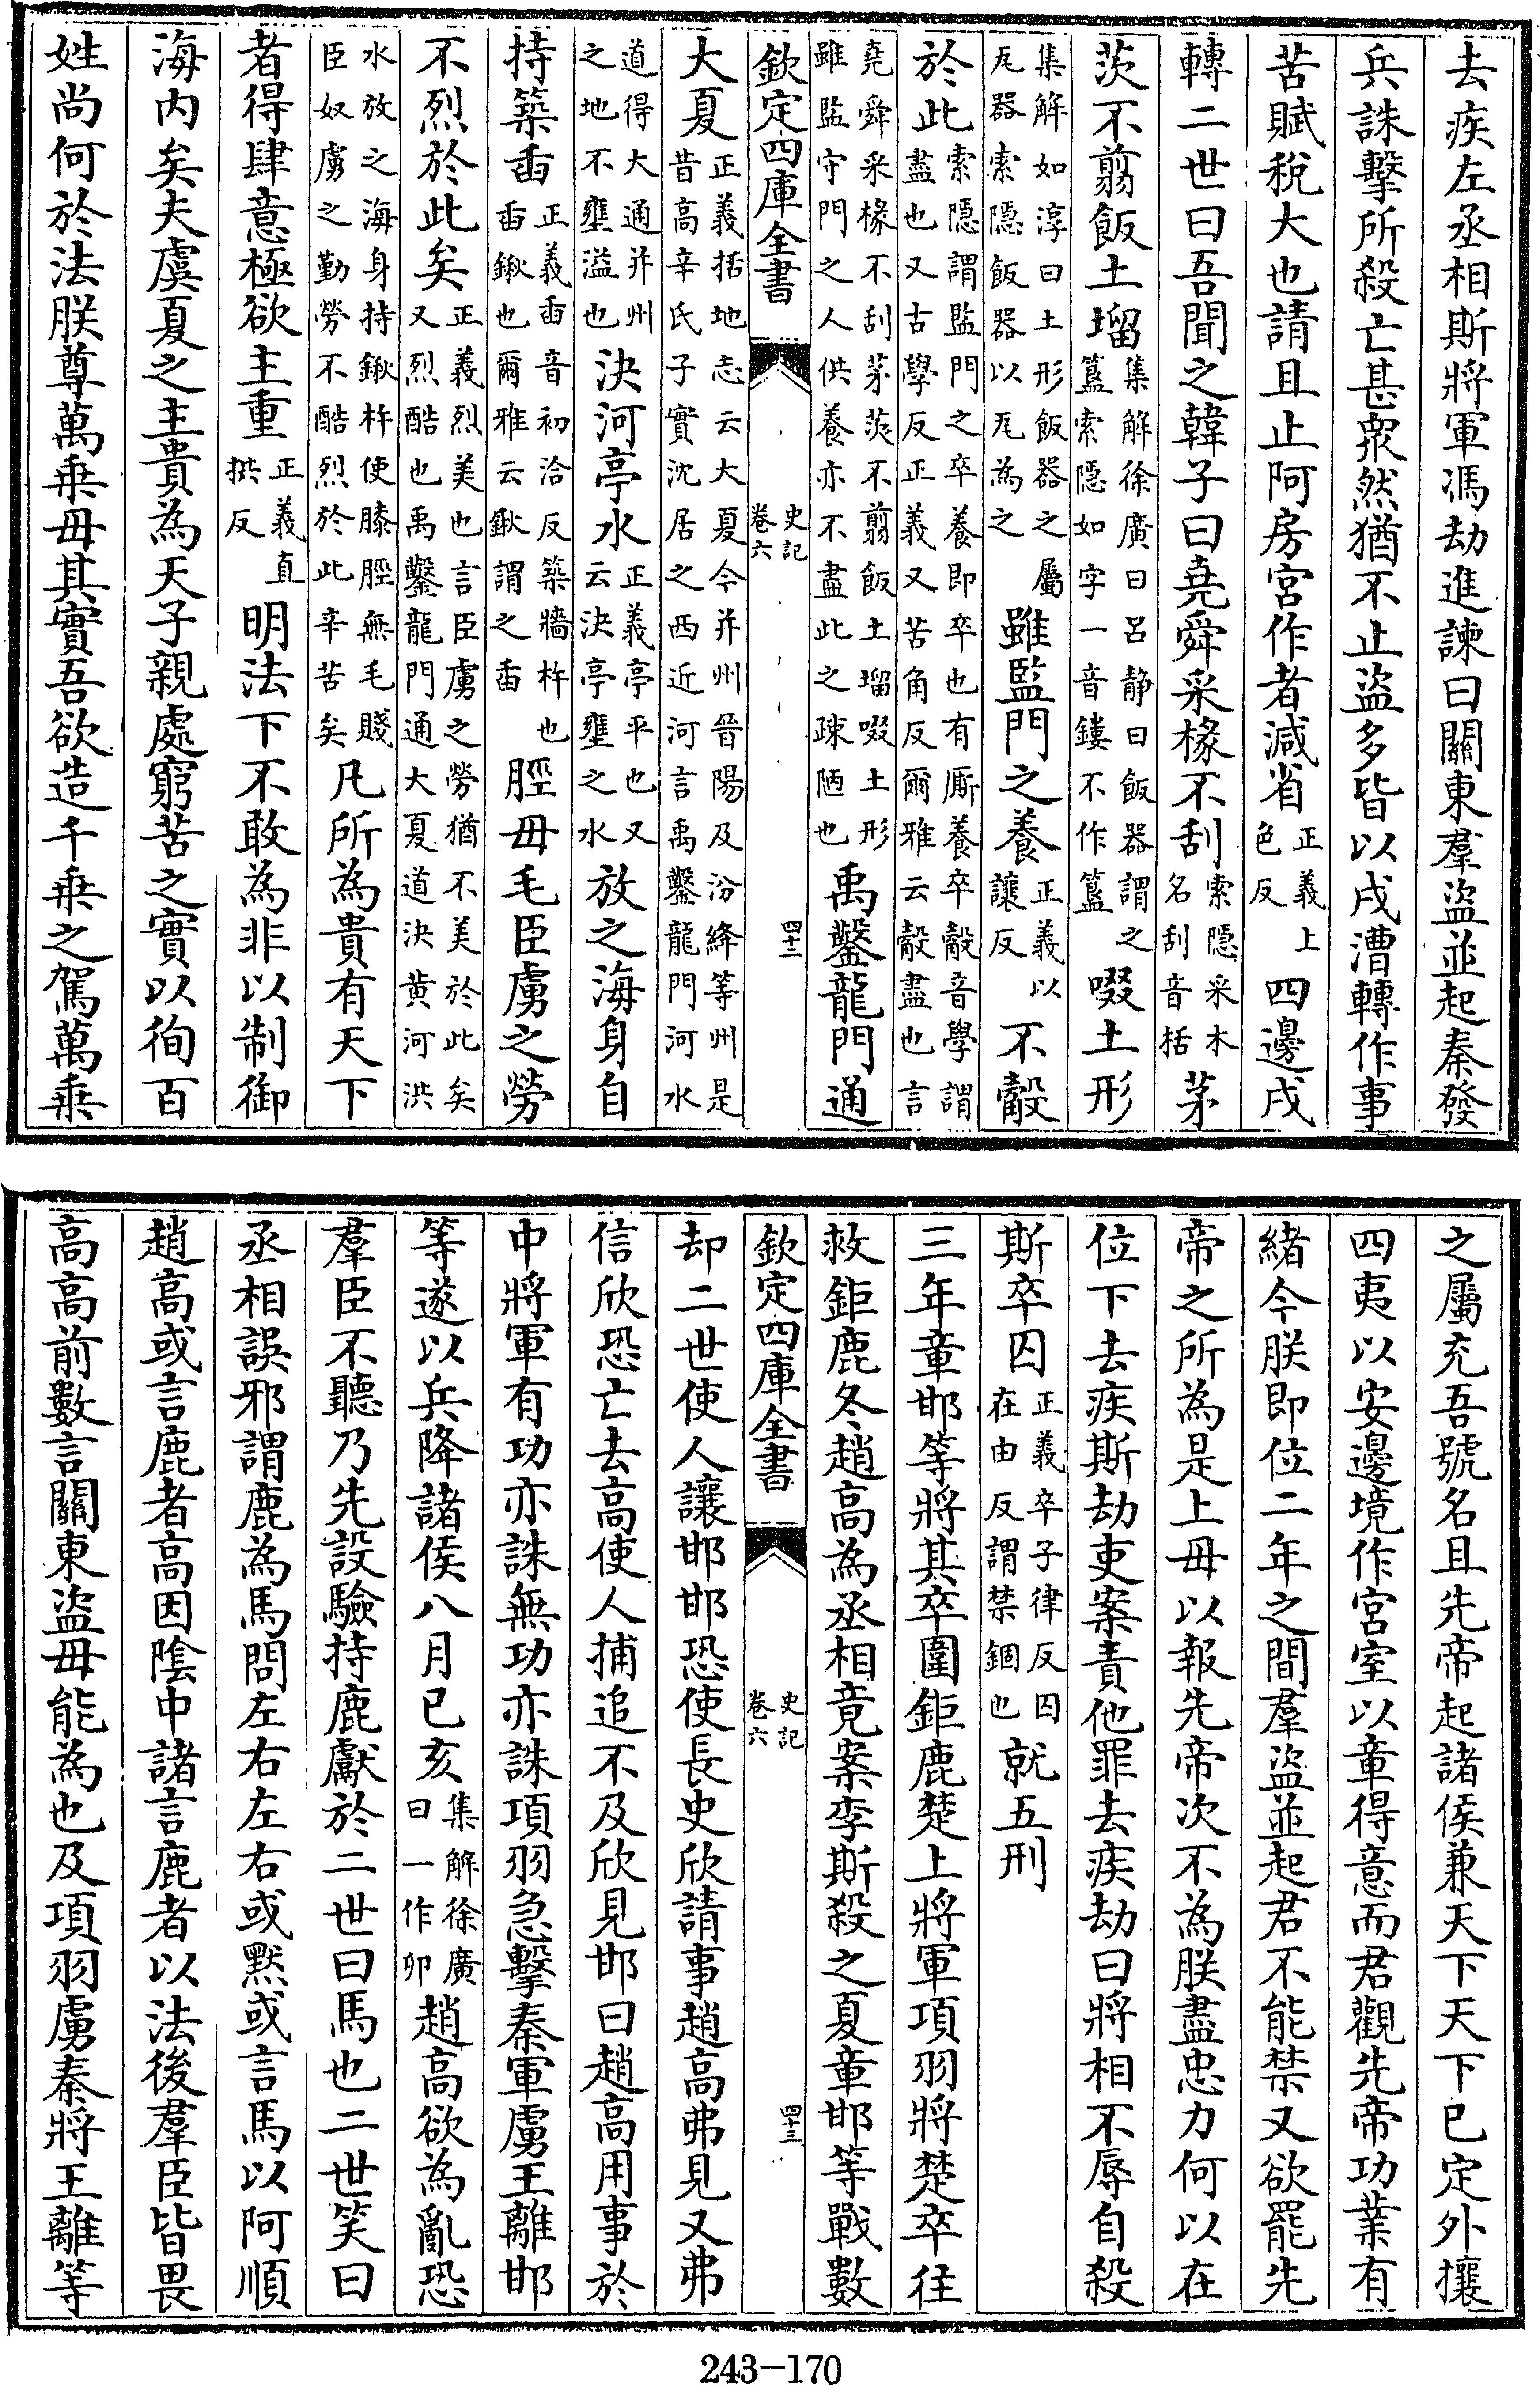 去疾左丞相斯將軍馮劫進諫曰關東羣盜並起秦發
兵誅擊所殺亡甚衆然猶不止盜多皆以戍漕轉作事
苦賦稅大也請且止阿房宮作者減省正義上色反四邊戍
轉二世曰吾聞之韓子曰堯舜采椽不刮索隱采木名刮音括茅
茨不翦飯土塯集解徐廣曰呂静曰飯器謂之簋索隱如字一音鏤不作簋啜土形
集解如淳曰土形飯器之屬瓦器索隱飯器以瓦為之雖監門之養正義以讓反不觳
於此索隱謂監門之卒養即卒也有厮養卒觳音學謂盡也又古學反正義又苦角反爾雅云觳盡也言
堯舜采椽不刮茅茨不翦飯土塯啜土形雖監守門之人供養亦不盡此之疎陋也禹鑿龍門通
欽定四庫全書 史記卷六 四十二
大夏正義括地志云大夏今并州晉陽及汾絳等州是昔高辛氏子實沈居之西近河言禹鑿龍門河水
道得大通并州之地不壅溢也決河亭水正義亭平也又云決亭壅之水放之海身自
持築臿正義臿音初洽反築牆杵也臿鍬也爾雅云鍬謂之臿脛毋毛臣虜之勞
不烈於此矣正義烈美也言臣虜之勞猶不美於此矣又烈酷也禹鑿龍門通大夏道決黄河洪
水放之海身持鍬杵使膝脛無毛賤臣奴虜之勤勞不酷烈於此辛苦矣凡所為貴有天下
者得肆意極欲主重正義直拱反明法下不敢為非以制御
海内矣夫虞夏之主貴為天子親處窮苦之實以徇百
姓尚何於法朕尊萬乗毋其實吾欲造千乗之駕萬乗
之屬充吾號名且先帝起諸侯兼天下天下已定外攘
四夷以安邊境作宮室以章得意而君觀先帝功業有
緒今朕即位二年之間羣盜並起君不能禁又欲罷先
帝之所為是上毋以報先帝次不為朕盡忠力何以在
位下去疾斯劫吏案責他罪去疾劫曰將相不辱自殺
斯卒囚正義卒子律反囚在由反謂禁錮也就五刑
三年章邯等將其卒圍鉅鹿楚上將軍項羽將楚卒往
救鉅鹿冬趙高為丞相竟案李斯殺之夏章邯等戰數
欽定四庫全書 史記卷六 四十三
却二世使人讓邯邯恐使長史欣請事趙高弗見又弗
信欣恐亡去高使人捕追不及欣見邯曰趙高用事於
中將軍有功亦誅無功亦誅項羽急擊秦軍虜王離邯
等遂以兵降諸侯八月已亥集解徐廣曰一作卯趙高欲為亂恐
羣臣不聽乃先設驗持鹿獻於二世曰馬也二世笑曰
丞相誤邪謂鹿為馬問左右左右或默或言馬以阿順
趙高或言鹿者高因陰中諸言鹿者以法後羣臣皆畏
高高前數言關東盜毋能為也及項羽虜秦將王離等
243-170